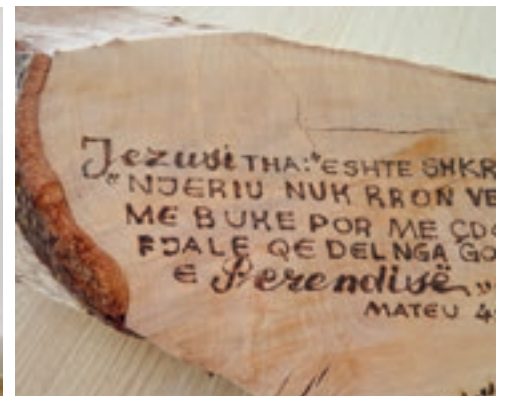 Jezusi THA: "ESHTE SHKR
"NJERIU NUK RRON VE
ME BUKE POR ME ÇDO
FJALE QE DEL NGA GO
E Perendisë"
MATEU 4